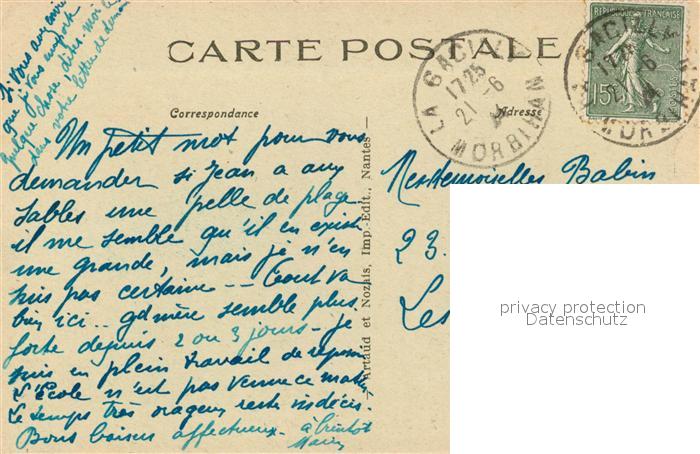 Si vous avez envie
que je vous rapporte
quelque chose, dites-moi le
dans votre lettre de demain
CARTE POSTALE
Correspondance
Adresse
REPUBLIQUE FRANÇAISE
15c
LA GACILLY
17 25
21 -6
MORBIHAN
GACILLY
17 25
MORBIHAN
Un petit mot pour vous
demander si Jean a aux
Sables une pelle de plage,
il me semble qu'il en existe
une grande, mais je n'en
suis pas certaine -- Tout va
bien ici.. gd mère semble plus
forte depuis 2 ou 3 jours - je
suis en plein travail de
L'Ecole n'est pas venue ce matin
Le temps très orageux reste indécis.
Bons baisers affectueux. à bientôt
Artaud et Nozais, Imp.-Edit., Nantes
Mesdemoiselles Babin
23.
Les
privacy protection
Datenschutz